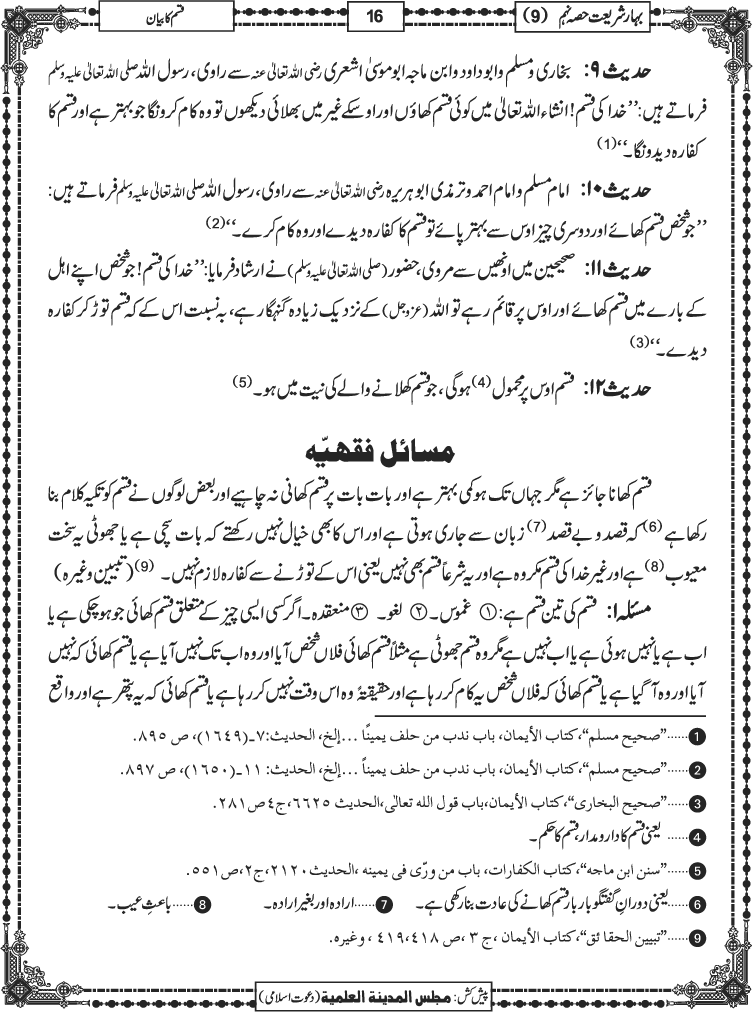 بہار شریعت حصہ نہم (9)
16
قسم کا بیان
حدیث ۹: بخاری و مسلم وابو داود وابن ماجہ ابو موسیٰ اشعری رضی اللہ تعالیٰ عنہ سے راوی، رسول اللہ صلی اللہ تعالیٰ علیہ وسلم
فرماتے ہیں: ’’خدا کی قسم! انشاء اللہ تعالیٰ میں کوئی قسم کھاؤں اور اوسکے غیر میں بھلائی دیکھوں تو وہ کام کرونگا جو بہتر ہے اور قسم کا
کفارہ دیدونگا۔‘‘(1)
حدیث ۱۰: امام مسلم وامام احمد وترمذی ابوہریرہ رضی اللہ تعالیٰ عنہ سے راوی، رسول اللہ صلی اللہ تعالیٰ علیہ وسلم فرماتے ہیں:
’’جو شخص قسم کھائے اور دوسری چیز اوس سے بہتر پائے تو قسم کا کفارہ دیدے اور وہ کام کرے۔‘‘(2)
حدیث ۱۱: صحیحین میں اونھیں سے مروی، حضور (صلی اللہ تعالیٰ علیہ وسلم) نے ارشاد فرمایا: ’’خدا کی قسم! جو شخص اپنے اہل
کے بارے میں قسم کھائے اور اوس پر قائم رہے تو اللہ (عزوجل) کے نزدیک زیادہ گنہگار ہے، بہ نسبت اس کے کہ قسم توڑ کر کفارہ
دیدے۔‘‘(3)
حدیث ۱۲: قسم اوس پر محمول(4) ہوگی، جو قسم کھلانے والے کی نیت میں ہو۔(5)
مسائل فقهيّه
قسم کھانا جائز ہے مگر جہاں تک ہو کمی بہتر ہے اور بات بات پر قسم کھانی نہ چاہیے اور بعض لوگوں نے قسم کو تکیہ کلام بنا
رکھا ہے(6) کہ قصد و بے قصد(7) زبان سے جاری ہوتی ہے اور اس کا بھی خیال نہیں رکھتے کہ بات سچی ہے یا جھوٹی یہ سخت
معیوب(8) ہے اور غیر خدا کی قسم مکروہ ہے اور یہ شرعاً قسم بھی نہیں یعنی اس کے توڑنے سے کفارہ لازم نہیں۔(9) (تبیین وغیرہ)
مسئلہ ۱: قسم کی تین قسم ہے: ① غموس۔ ② لغو۔ ③ منعقدہ۔ اگر کسی ایسی چیز کے متعلق قسم کھائی جو ہو چکی ہے یا
اب ہے یا نہیں ہوئی ہے یا اب نہیں ہے مگر وہ قسم جھوٹی ہے مثلاً قسم کھائی فلاں شخص آیا اور وہ اب تک نہیں آیا ہے یا قسم کھائی کہ نہیں
آیا اور وہ آگیا ہے یا قسم کھائی کہ فلاں شخص یہ کام کر رہا ہے اور حقیقۃً وہ اس وقت نہیں کر رہا ہے یا قسم کھائی کہ یہ پتھر ہے اور واقع
1......”صحيح مسلم“،كتاب الأيمان، باب ندب من حلف يمينًا ...إلخ، الحديث:٧ـ(١٦٤٩)، ص ٨٩٥.
2......”صحيح مسلم“،كتاب الأيمان، باب ندب من حلف يميناً ...إلخ، الحديث: ١١ـ(١٦٥٠)، ص ٨٩٧.
3......”صحيح البخاری“،كتاب الأيمان،باب قول الله تعالىٰ،الحديث ٦٦٢٥،ج٤ص٢٨١.
4...... یعنی قسم کا دارومدار، قسم کا حکم۔
5......”سنن ابن ماجه“،كتاب الكفارات، باب من ورّى فى يمينه ،الحديث٢١٢٠،ج٢،ص٥٥١.
6......یعنی دورانِ گفتگو بار بار قسم کھانے کی عادت بنا رکھی ہے۔ 7......ارادہ اور بغیر ارادہ۔ 8......باعثِ عیب۔
9......”تبيين الحقائق“،كتاب الأيمان ،ج ٣ ،ص ٤١٨،٤١٩ ، وغيره.
پیش کش: مجلس المدينة العلمية (دعوتِ اسلامی)